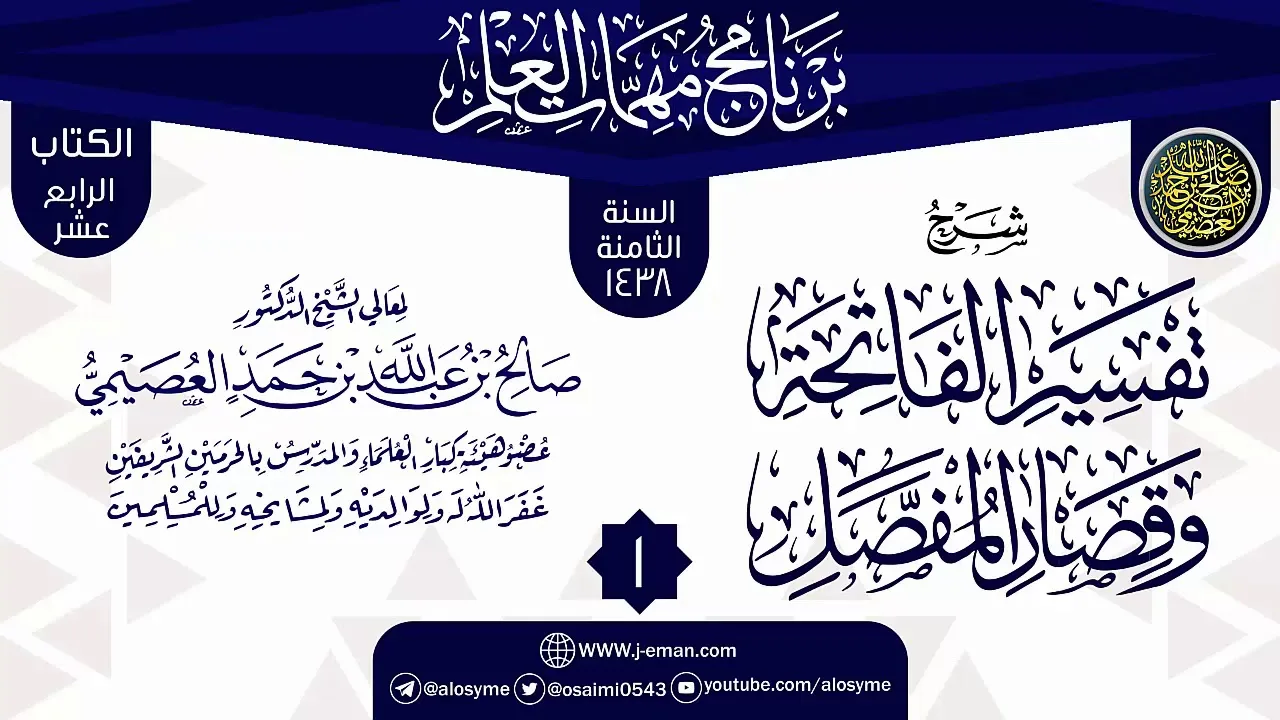 بَرْنَامَج مُهِمَّاتِ الْعِلْمِ
الكتاب
الرابع
عشر
السنة
الثامنة
١٤٣٨
صالح بن عبد الله بن حمد العصيمي
شَرْحُ
تَفْسِيرِ الْفَاتِحَةِ
وَقِصَارِ الْمُفَصَّلِ
لِمَعَالِي الشَّيْخِ الدُّكْتُورِ
صَالِحُ بْنُ عَبْدِ اللَّهِ بْنِ حَمَدٍ الْعُصَيْمِيُّ
عُضْوُ هَيْئَةِ كِبَارِ الْعُلَمَاءِ وَالْمُدَرِّسُ بِالْحَرَمَيْنِ الشَّرِيفَيْنِ
غَفَرَ اللَّهُ لَهُ وَلِوَالِدَيْهِ وَلِمَشَايِخِهِ وَلِلْمُسْلِمِينَ
١
WWW.j-eman.com
@alosyme @osaimi0543 youtube.com/alosyme